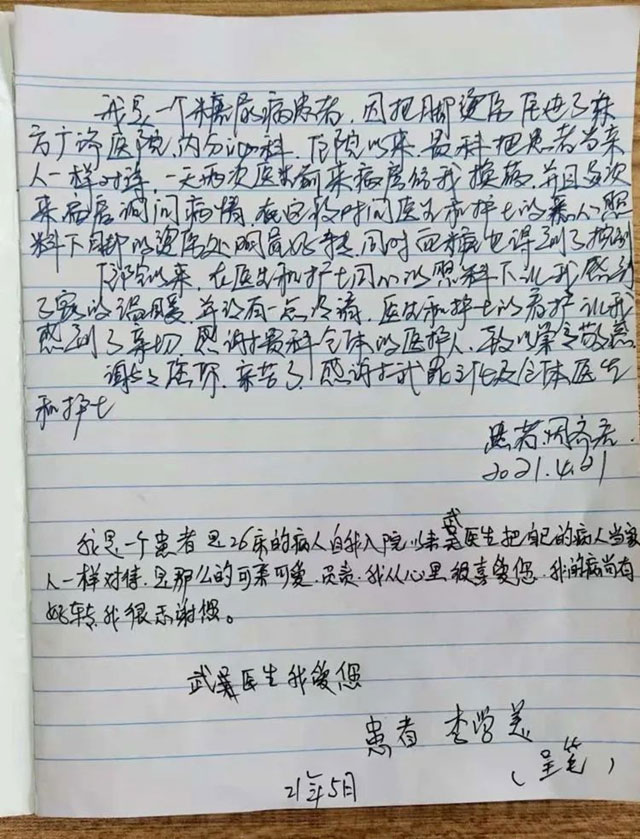 我是一个糖尿病患者,因把脚烫伤住进了东
方广济医院,内分泌科,住院以来,贵科把患者当亲
人一样对待,一天两次医生前来病房给我换药,并且每次
来病房询问病情,在这段时间医生和护士的亲人照
料下自脚的烫伤处明显好转,同时血糖也得到了控制
住院以来,在医生和护士同们的照料下让我感到
了家的温暖,并没有一点冷清,医生和护士的看护让我
感到了亲切,感谢贵科全体的医护人,致以崇高敬意
谢谢医师,辛苦了,感谢 主任及全体医生
和护士
患者:周
2021.4.21
我是一个患者是26床的病人自我入院以来武 医生把自己的病人当家
人一样对待,是那么的可亲可爱,负责,我从心里很喜爱您,我的病尚有
好转,我很示谢您。
武 医生我爱您
患者 李学美
(呈笔)
21年5月